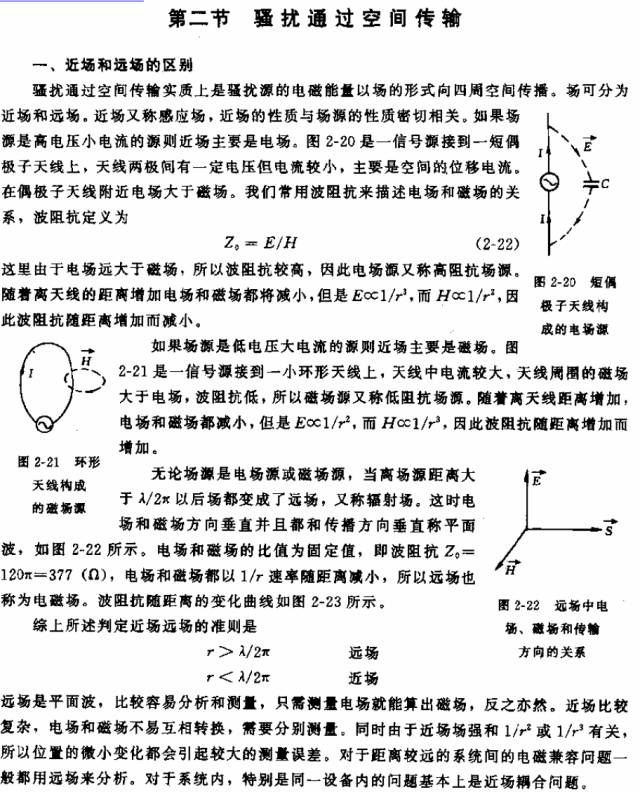 第二节 骚扰通过空间传输
一、近场和远场的区别
骚扰通过空间传输实质上是骚扰源的电磁能量以场的形式向四周空间传播。场可分为
近场和远场。近场又称感应场，近场的性质与场源的性质密切相关。如果场
源是高电压小电流的源则近场主要是电场。图 2-20 是一信号源接到一短偶
极子天线上，天线两极间有一定电压但电流较小，主要是空间的位移电流。
在偶极子天线附近电场大于磁场。我们常用波阻抗来描述电场和磁场的关
系，波阻抗定义为
Z₀ = E/H (2-22)
这里由于电场远大于磁场，所以波阻抗较高，因此电场源又称高阻抗场源。
随着离天线的距离增加电场和磁场都将减小，但是 E∝1/r³，而 H∝1/r²，因
此波阻抗随距离增加而减小。
I
E
C
I
图 2-20 短偶
极子天线构
成的电场源
如果场源是低电压大电流的源则近场主要是磁场。图
2-21 是一信号源接到一小环形天线上，天线中电流较大，天线周围的磁场
大于电场，波阻抗低，所以磁场源又称低阻抗场源。随着离天线距离增加，
电场和磁场都减小，但是 E∝1/r²，而 H∝1/r³，因此波阻抗随距离增加而
增加。
I
H
图 2-21 环形
天线构成
的磁场源
无论场源是电场源或磁场源，当离场源距离大
于 λ/2π 以后场都变成了远场，又称辐射场。这时电
场和磁场方向垂直并且都和传播方向垂直称平面
波，如图 2-22 所示。电场和磁场的比值为固定值，即波阻抗 Z₀=
120π=377 (Ω)，电场和磁场都以 1/r 速率随距离减小，所以远场也
称为电磁场。波阻抗随距离的变化曲线如图 2-23 所示。
E
S
H
图 2-22 远场中电
场、磁场和传输
方向的关系
综上所述判定近场远场的准则是
r > λ/2π 远场
r < λ/2π 近场
远场是平面波，比较容易分析和测量，只需测量电场就能算出磁场，反之亦然。近场比较
复杂，电场和磁场不易互相转换，需要分别测量。同时由于近场场强和 1/r² 或 1/r³ 有关，
所以位置的微小变化都会引起较大的测量误差。对于距离较远的系统间的电磁兼容问题一
般都用远场来分析。对于系统内，特别是同一设备内的问题基本上是近场耦合问题。